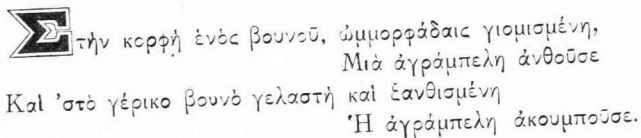 Στὴν κορφὴ ἑνὸς βουνοῦ, ὠμμορφάδαις γιομισμένη,
Μιὰ ἀγράμπελη ἀνθοῦσε
Καὶ 'στὸ γέρικο βουνὸ γελαστὴ καὶ ξανθισμένη
Ἡ ἀγράμπελη ἀκουμποῦσε.